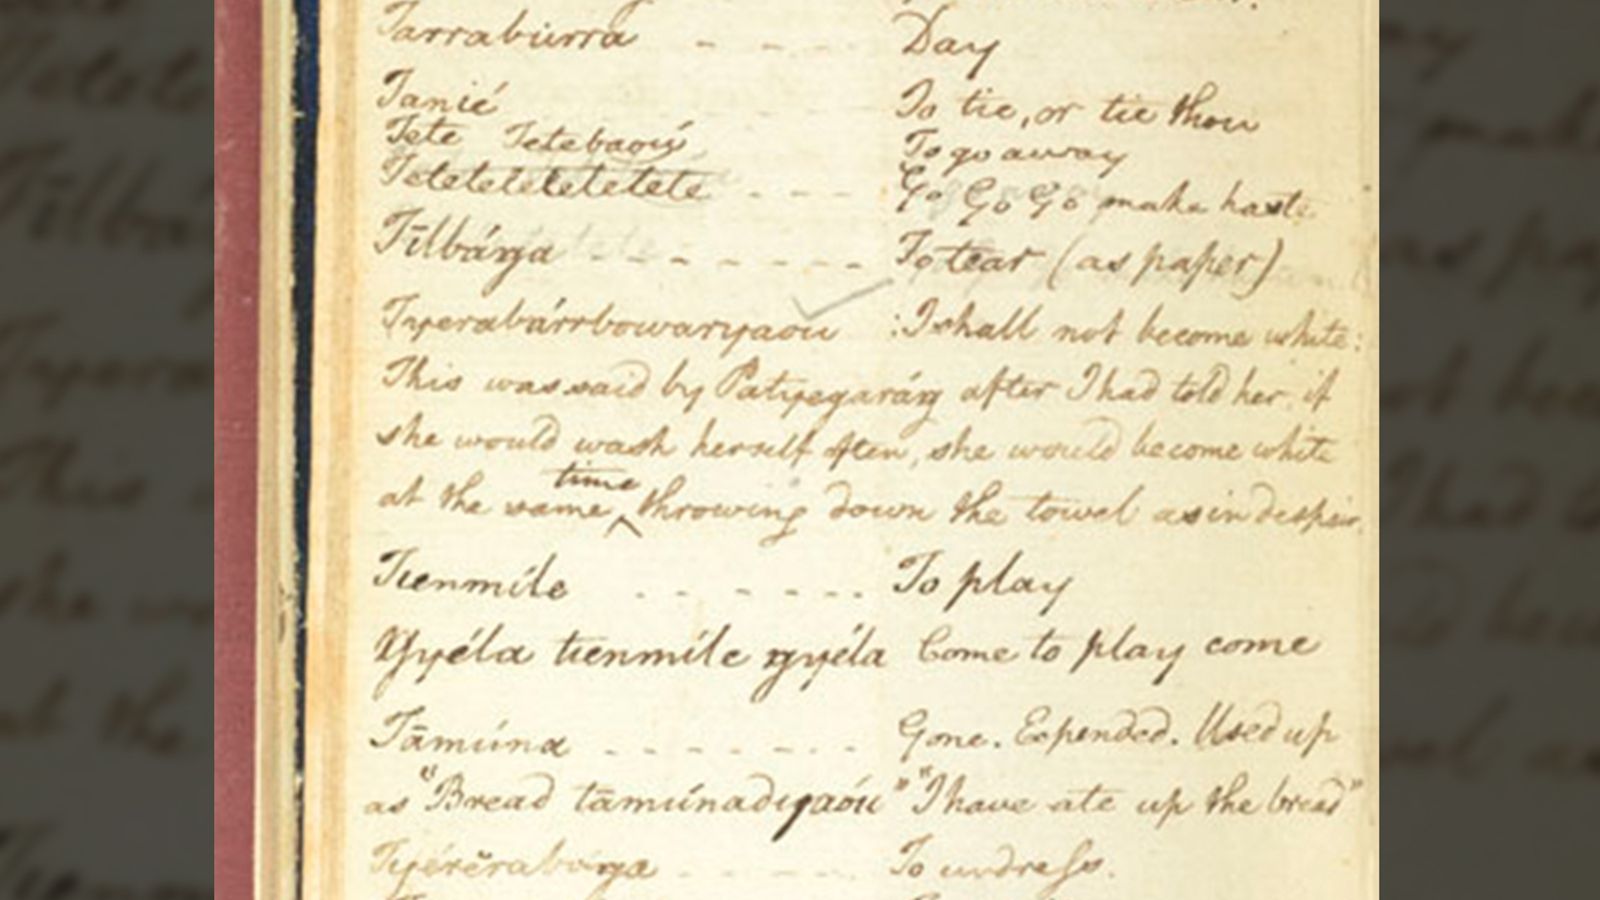 Tarraburra - - - - Day
Tanié To tie, or tie thou
Tete Tetebaoú To go away
Tetetetetetetete - - - Go Go Go make haste
Tīlbánga - - - - - - - To tear (as paper)
Tyerabárrbowaryaou :I shall not become white:
This was said by Patyegaráng after I had told her, if
she would wash herself often, she would become white
at the same time throwing down the towel as in despair.
Tienmíle - - - - - - To play
Gnyéla tienmíle gnyéla Come to play come
Tāmúna - - - - - - - Gone. Expended. Used up
as "Bread tāmúnadyaóu" "I have ate up the bread"
- - - - - To undress.